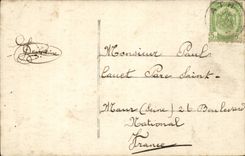 Monsieur Paul
Cauet Parc Saint-
Maur (Seine) 26 Boulevard
National
France